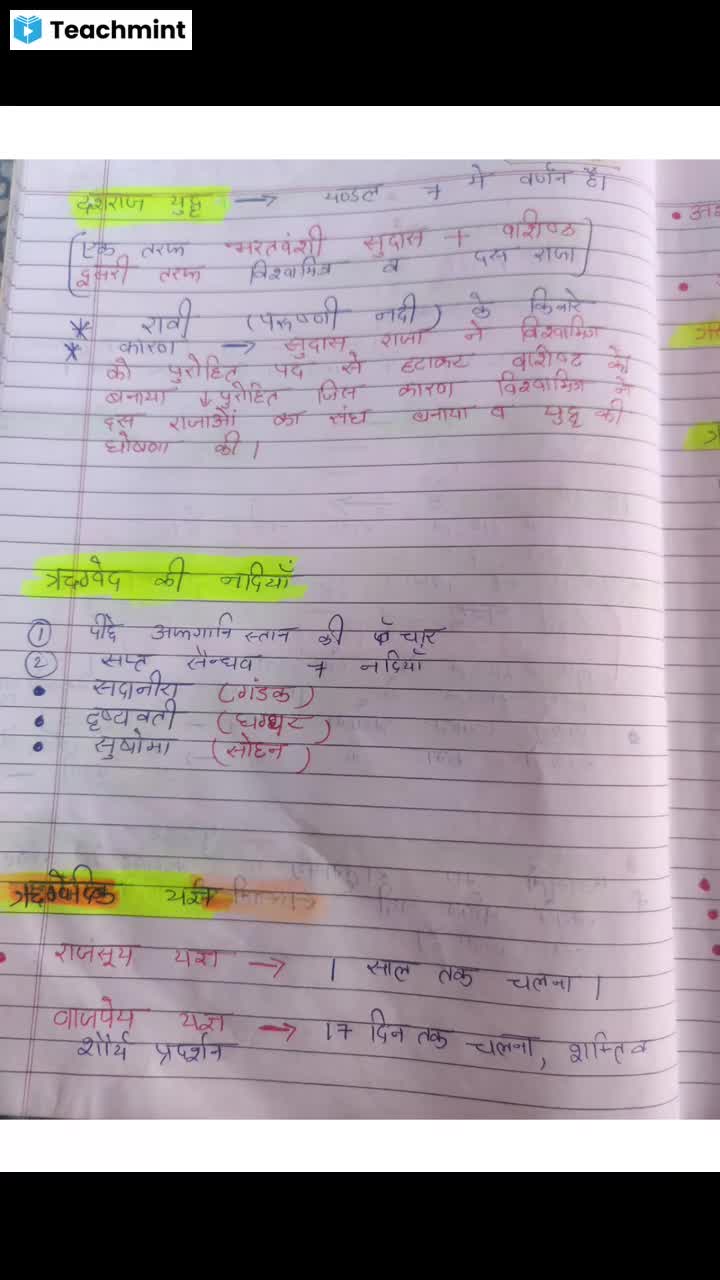 Teachmint
दशराज युद्ध → मण्डल 7 मे वर्णन है।
एक तरफ भरतवंशी सुदास + वाशिष्ठ
दूसरी तरफ विश्वामित्र व दस राजा
* रावी (परूष्णी नदी) के किनारे
* कारण → सुदास राजा ने विश्वामित्र
को पुरोहित पद से हटाकर वाशिष्ट को
बनाया ↓ पुरोहित जिस कारण विश्वामित्र ने
दस राजाओं का संघ बनाया व युद्ध की
घोषणा की।
ऋग्वेद की नदियाँ
① पीछे अफगानिस्तान की चार
② सप्त सैन्धव 7 नदियाँ
• सदानीरा (गंडक)
• दृष्यवती (घग्घर)
• सुषोमा (सोहन)
ऋग्वैदिक यज्ञ
• राजसूय यज्ञ → 1 साल तक चलना।
वाजपेय यज्ञ → 17 दिन तक चलना, शक्ति व
शौर्य प्रदर्शन